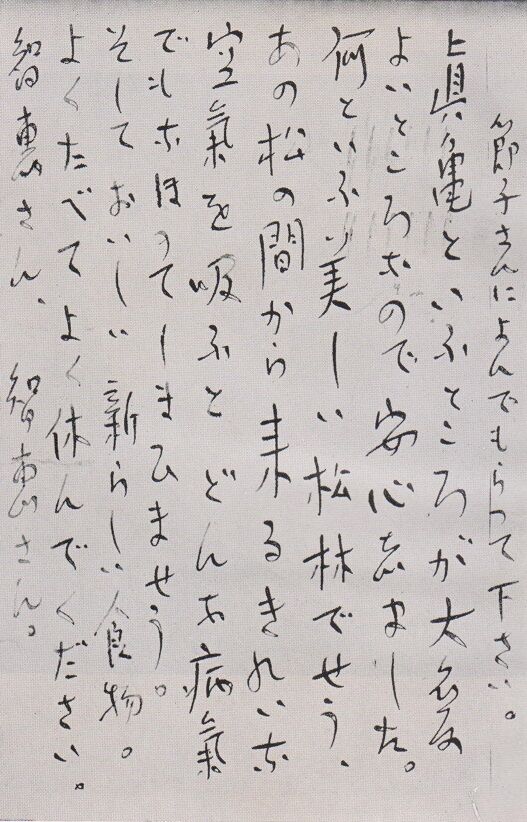 節子さんによんでもらって下さい。
眞亀といふところが大変
よいところなので安心しました。
何といふ美しい松林でせう、
あの松の間から来るきれいな
空氣を吸ふとどんな病氣
でもなほってしまひませう。
そしておいしい新らしい食物。
よくたべてよく休んでください。
智恵さん、智恵さん。